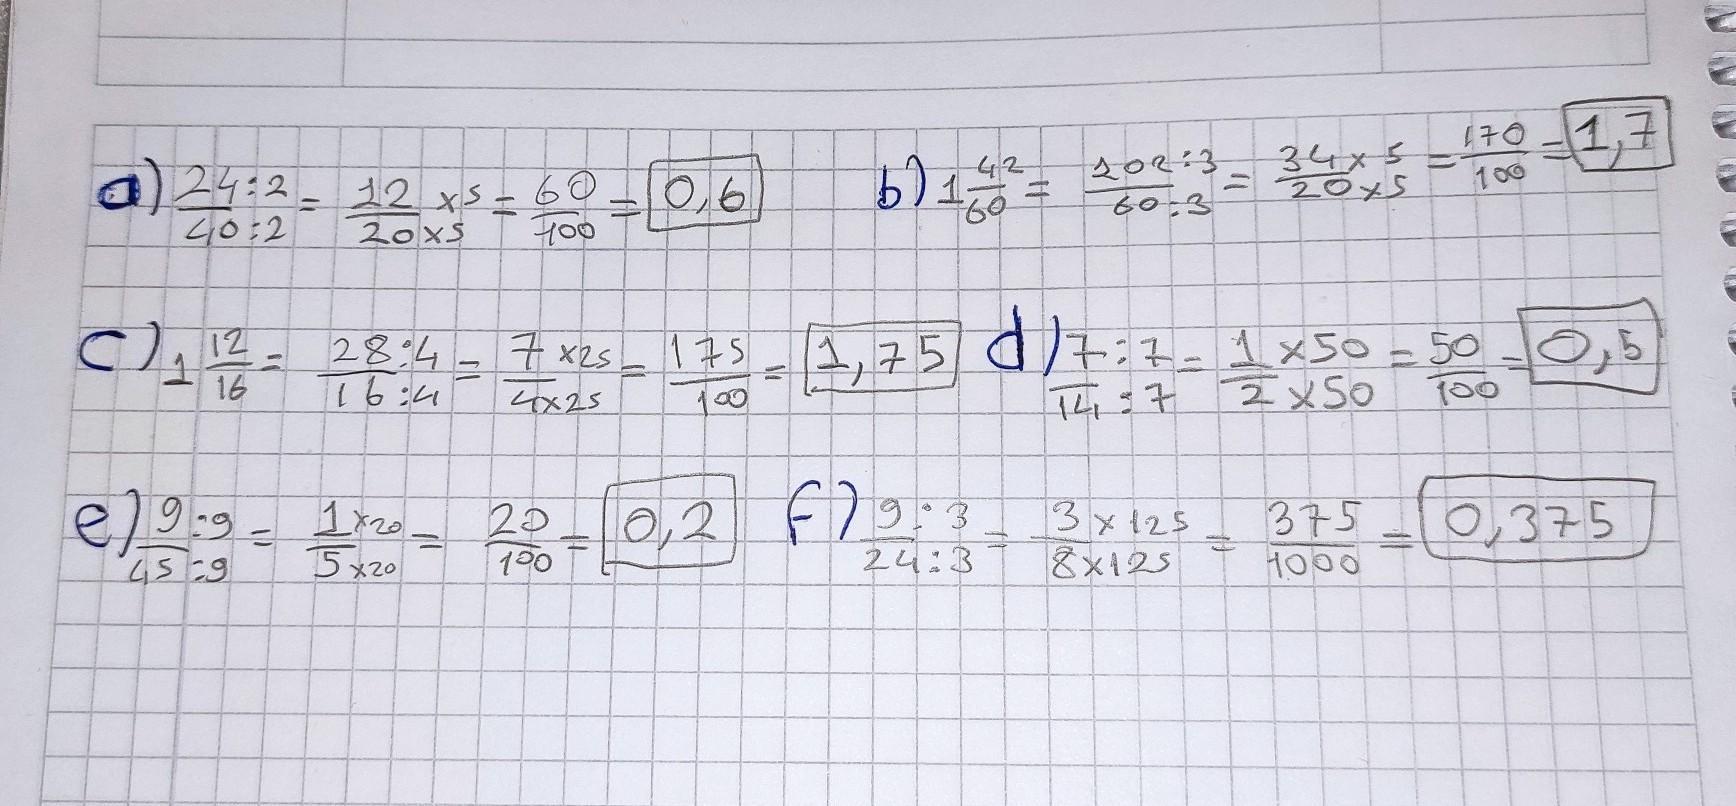 a) 24:2/40:2 = 12x5/20x5 = 60/100 = 0,6
b) 1 42/60 = 102:3/60:3 = 34x5/20x5 = 170/100 = 1,7
c) 1 12/16 = 28:4/16:4 = 7x25/4x25 = 175/100 = 1,75
d) 7:7/14:7 = 1x50/2x50 = 50/100 = 0,5
e) 9:9/45:9 = 1x20/5x20 = 20/100 = 0,2
f) 9:3/24:3 = 3x125/8x125 = 375/1000 = 0,375